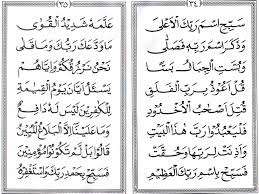 (٣٤)
سَبِّحِ اسْمَ رَبِّكَ الْأَعْلَى
وَذَكَرَ اسْمَ رَبِّهِ فَصَلَّى
وَبُسَّتِ الْجِبَالُ بَسًّا
قُلْ أَعُوذُ بِرَبِّ الْفَلَقِ
قُتِلَ أَصْحٰبُ الْأُخْدُودِ
فَلْيَعْبُدُوا رَبَّ هٰذَا
وَأَذِنَتْ لِرَبِّهَا وَحُقَّتْ
فَسَبِّحْ بِاسْمِ رَبِّكَ الْعَظِيمِ
(٣٥)
عَلَّمَهُ شَدِيدُ الْقُوَى
مَا وَدَّعَكَ رَبُّكَ وَمَا قَلَى
نَحْنُ نَرْزُقُكُمْ وَإِيَّاهُمْ
يَسْئَلُ أَيَّانَ يَوْمُ الْقِيٰمَةِ
لِلْكٰفِرِينَ لَيْسَ لَهُ دَافِعٌ
وَمَا عَلَيْنَا إِلَّا الْبَلَاغُ الْمُبِينُ
قَالُوا بَلْ لَمْ تَكُونُوا مُؤْمِنِينَ
فَسَبِّحْ بِحَمْدِ رَبِّكَ وَاسْتَغْفِرْهُ